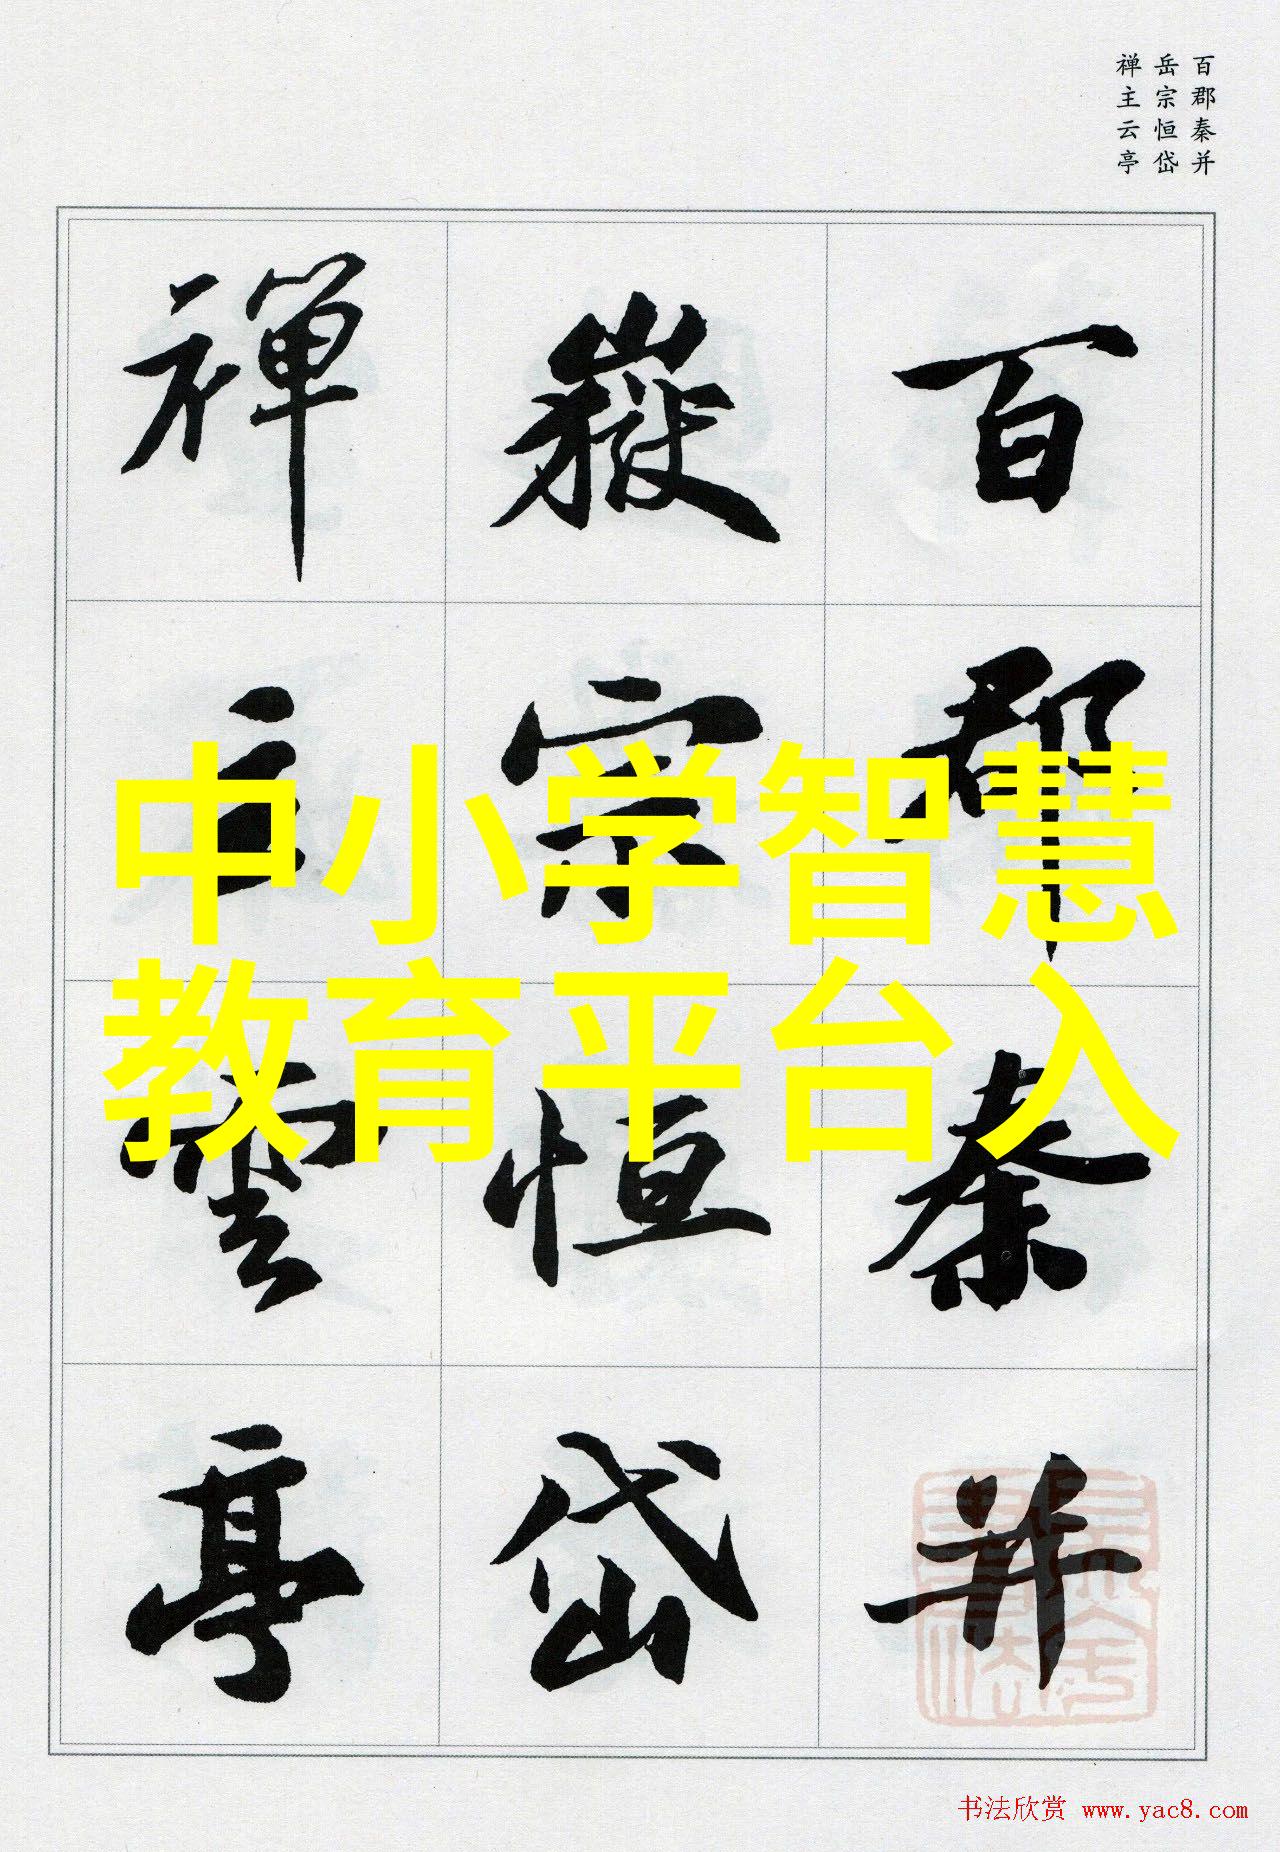 百郡秦并
岳宗恒岱
禅主云亭
百郡秦并
嶽宗恒岱
禅主雲亭
中小学智慧
教育平台入
书法欣赏 www.yac8.com